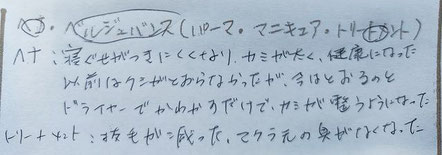 ヘナ・ベルジュバンス(パーマ・マニキュア・トリートメント)
ヘナ:寝ぐせがつきにくくなり、カミが太く、健康になった
以前はクシがとおらなかったが、今はとおるのと
ドライヤーでかわかすだけで、カミが整うようになった
トリートメント:抜毛が減った、マクラ元の臭がなくなった